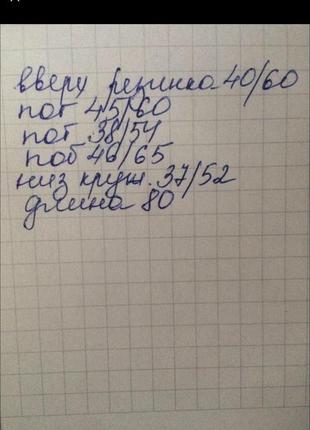 вверу резинка 40/60
пог 45/60
пот 38/54
поб 46/65
низ круж. 37/52
длина 80